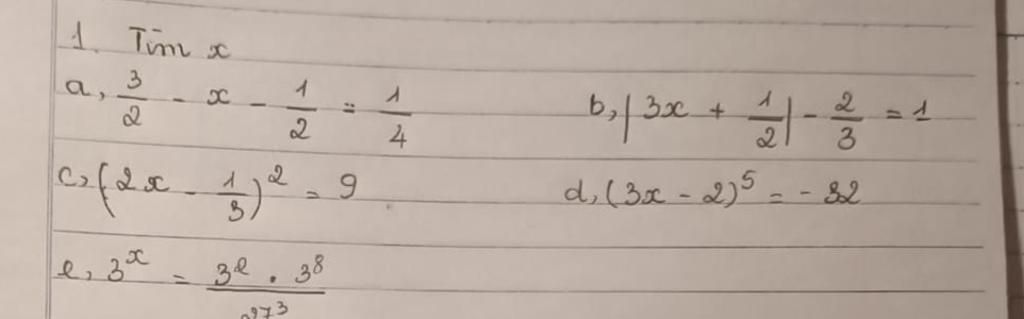 1. Tìm x
a, 3/2 - x - 1/2 = 1/4 b, |3x + 1/2| - 2/3 = 1
c, (2x - 1/3)^2 = 9 d, (3x - 2)^5 = - 32
e, 3^x = (3^2 . 3^8)/27^3